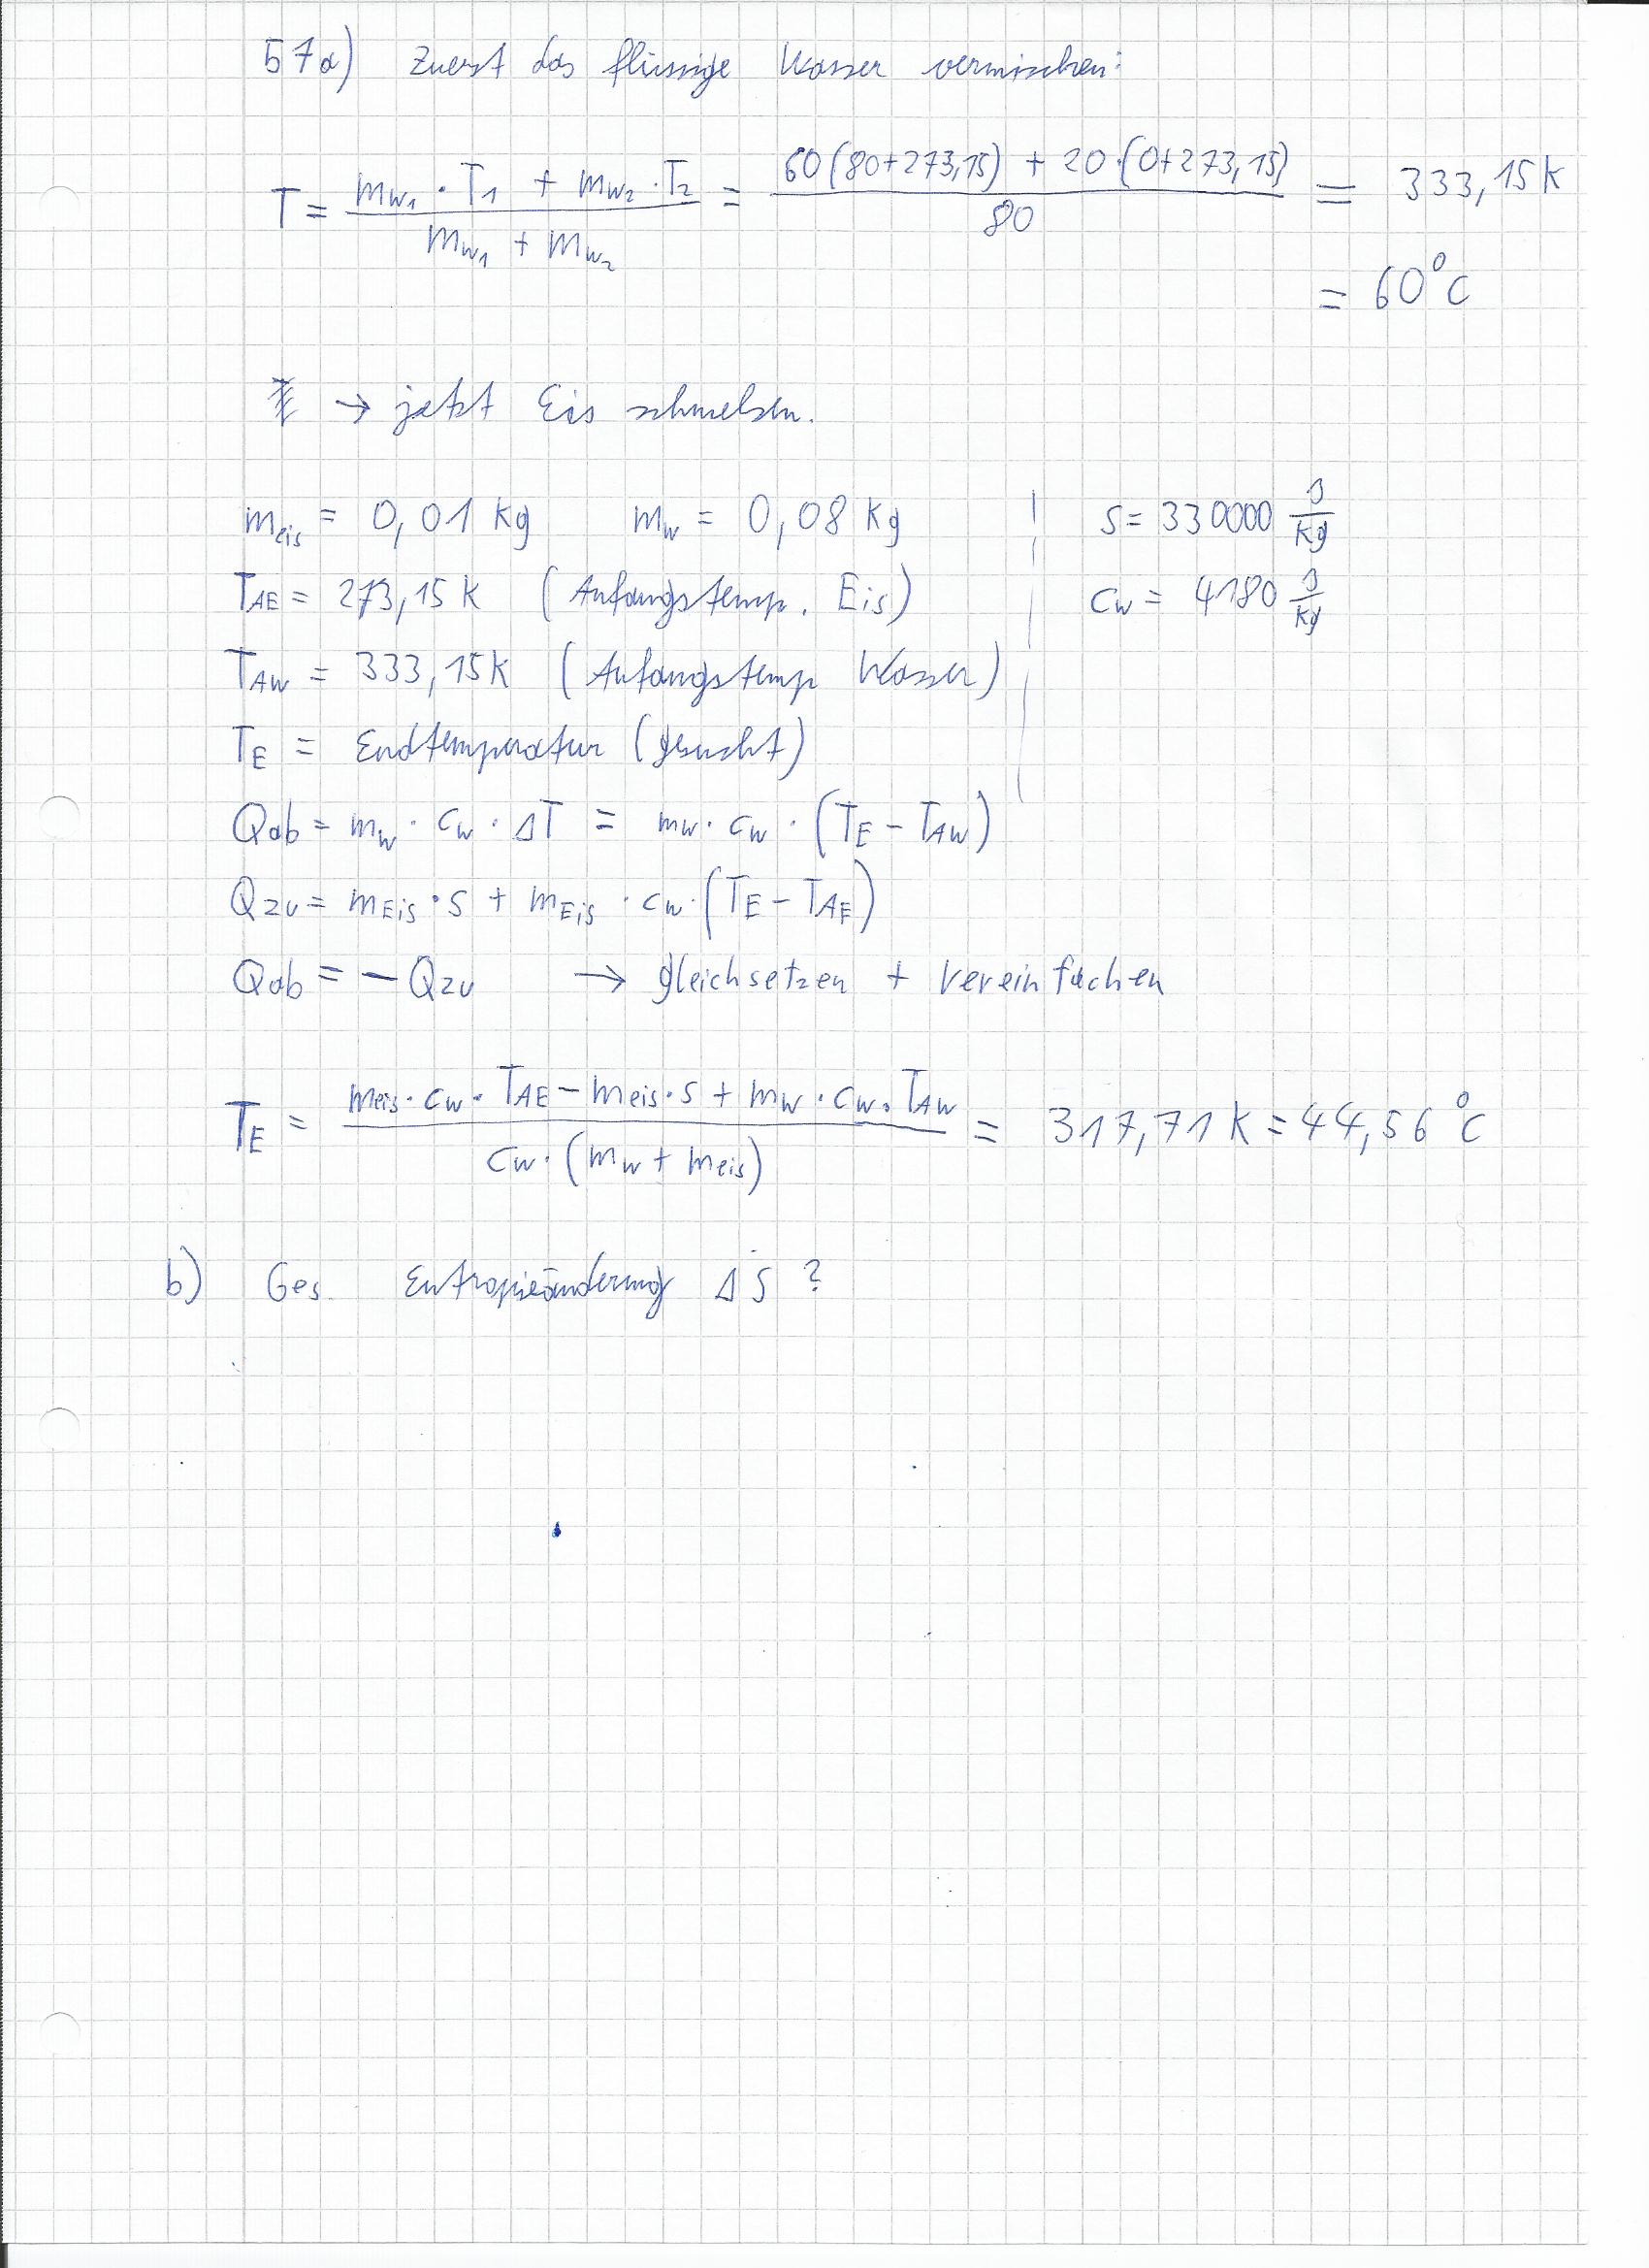 57a) Zuerst das flüssige Wasser vermischen:
T = (m_W1 · T_1 + m_W2 · T_2) / (m_W1 + m_W2) = (60(80+273,15) + 20·(0+273,15)) / 80 = 333,15 K
= 60°C
→ jetzt Eis schmelzen.
m_eis = 0,01 kg m_W = 0,08 kg | S = 330000 J/kg
T_AE = 273,15 K (Anfangstemp. Eis) c_W = 4180 J/kg
T_AW = 333,15 K (Anfangstemp Wasser)
T_E = Endtemperatur (gesucht)
Qab = m_W · c_W · ΔT = m_W · c_W · (T_E − T_AW)
Qzu = m_Eis · S + m_Eis · c_W · (T_E − T_AE)
Qab = − Qzu → gleichsetzen + vereinfachen
T_E = (m_eis · c_W · T_AE − m_eis · S + m_W · c_W · T_AW) / (c_W · (m_W + m_eis)) = 317,71 K = 44,56 °C
b) Ges. Entropieänderung ΔS ?